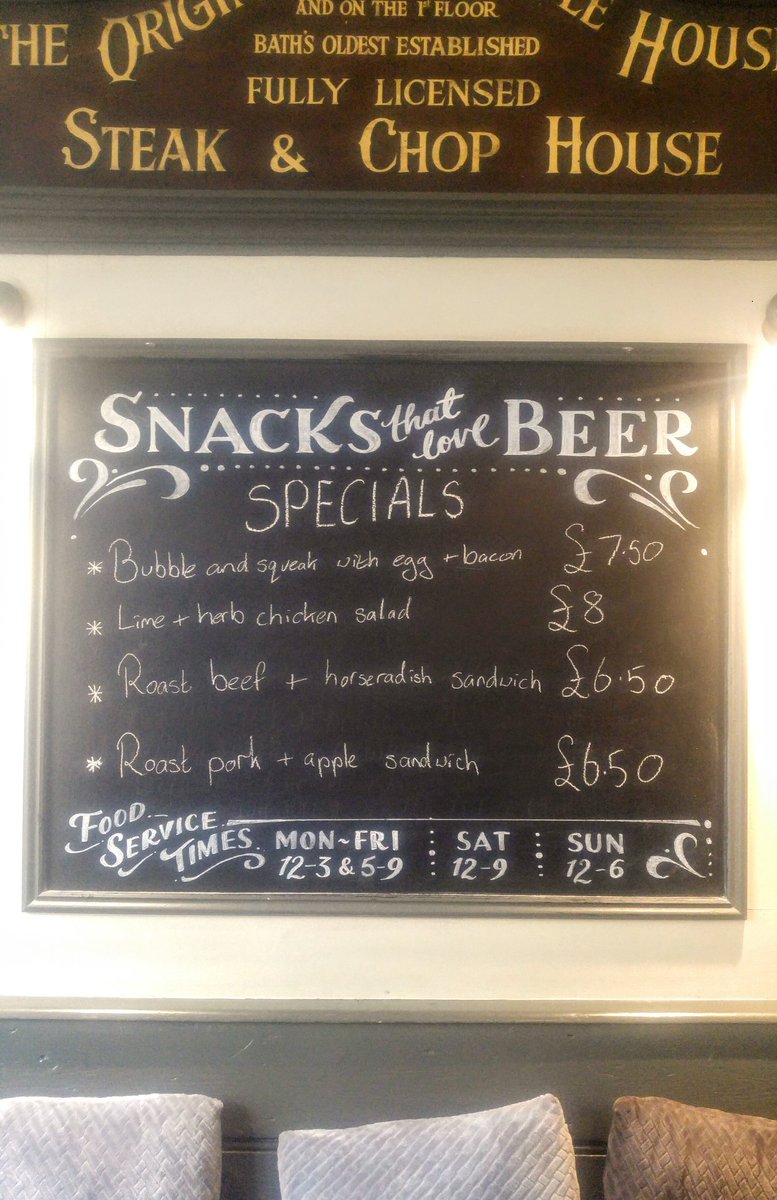 AND ON THE 1ST FLOOR
THE ORIGIN LE HOUSE
BATH'S OLDEST ESTABLISHED
FULLY LICENSED
STEAK & CHOP HOUSE
SNACKS that love BEER
SPECIALS
* Bubble and squeak with egg + bacon £7.50
* Lime + herb chicken salad £8
* Roast beef + horseradish sandwich £6.50
* Roast pork + apple sandwich £6.50
FOOD SERVICE TIMES
MON~FRI SAT SUN
12-3 & 5-9 12-9 12-6